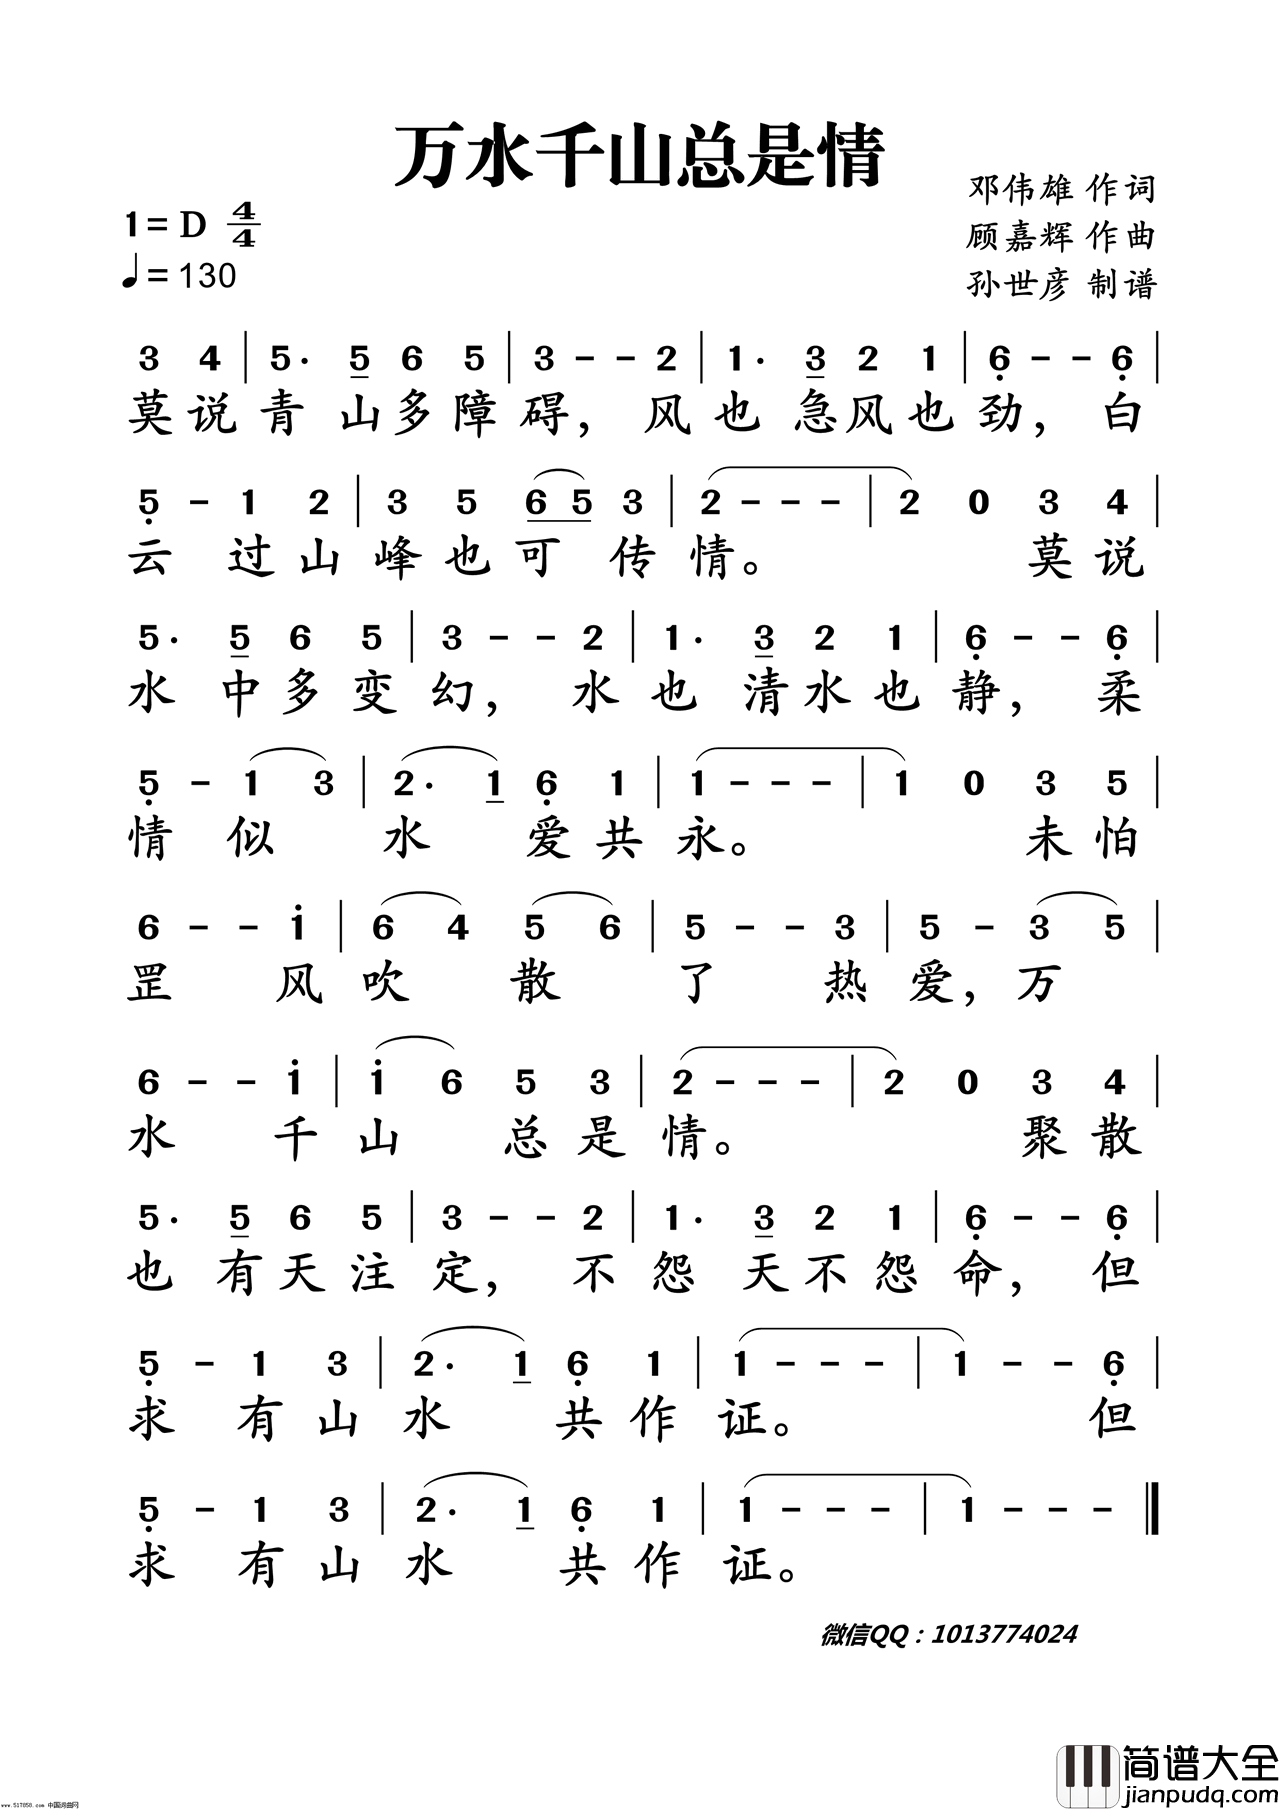 万水千山总是情
邓伟雄 作词
1= D 4/4
顾嘉辉 作曲
♩= 130
孙世彦 制谱
3 4 | 5· 5 6 5 | 3 - - 2 | 1· 3 2 1 | 6̣ - - 6̣ |
莫说青山多障碍，风也急风也劲，白
5̣ - 1 2 | 3 5 6 5 3 | 2 - - - | 2 0 3 4 |
云过山峰也可传情。莫说
5· 5 6 5 | 3 - - 2 | 1· 3 2 1 | 6̣ - - 6̣ |
水中多变幻，水也清水也静，柔
5̣ - 1 3 | 2· 1 6̣ 1 | 1 - - - | 1 0 3 5 |
情似水爱共永。未怕
6 - - 1̇ | 6 4 5 6 | 5 - - 3 | 5 - 3 5 |
罡风吹散了热爱，万
6 - - 1̇ | 1̇ 6 5 3 | 2 - - - | 2 0 3 4 |
水千山总是情。聚散
5· 5 6 5 | 3 - - 2 | 1· 3 2 1 | 6̣ - - 6̣ |
也有天注定，不怨天不怨命，但
5̣ - 1 3 | 2· 1 6̣ 1 | 1 - - - | 1 - - 6̣ |
求有山水共作证。但
5̣ - 1 3 | 2· 1 6̣ 1 | 1 - - - | 1 - - - ‖
求有山水共作证。
微信QQ：1013774024
简谱大全
jianpudq.com
www.517858.com 中国词曲网